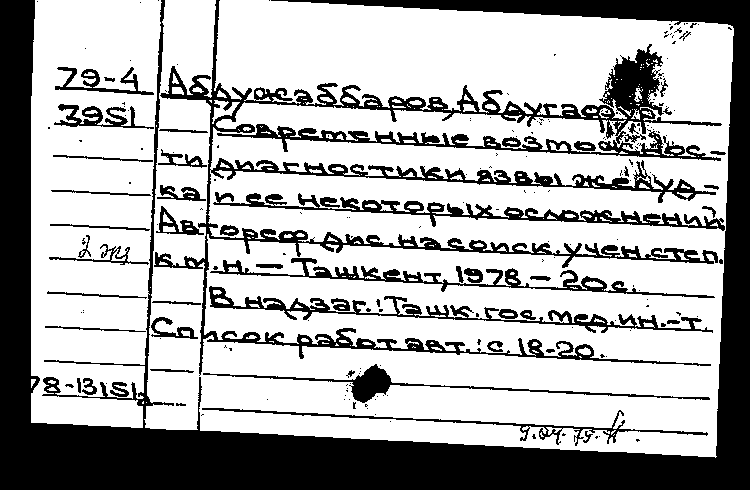 79-4 Абдужаббаров, Абдугафур.
3951 Современные возможнос-
ти диагностики язвы желуд-
ка и ее некоторых осложнений.
Автореф. дис. на соиск. учен. степ.
2 экз к.м.н. – Ташкент, 1978. – 20 с.
В надзаг.: Ташк. гос. мед. ин.-т.
Список работ авт.: с. 18-20.
78-13151а
9.04.79.